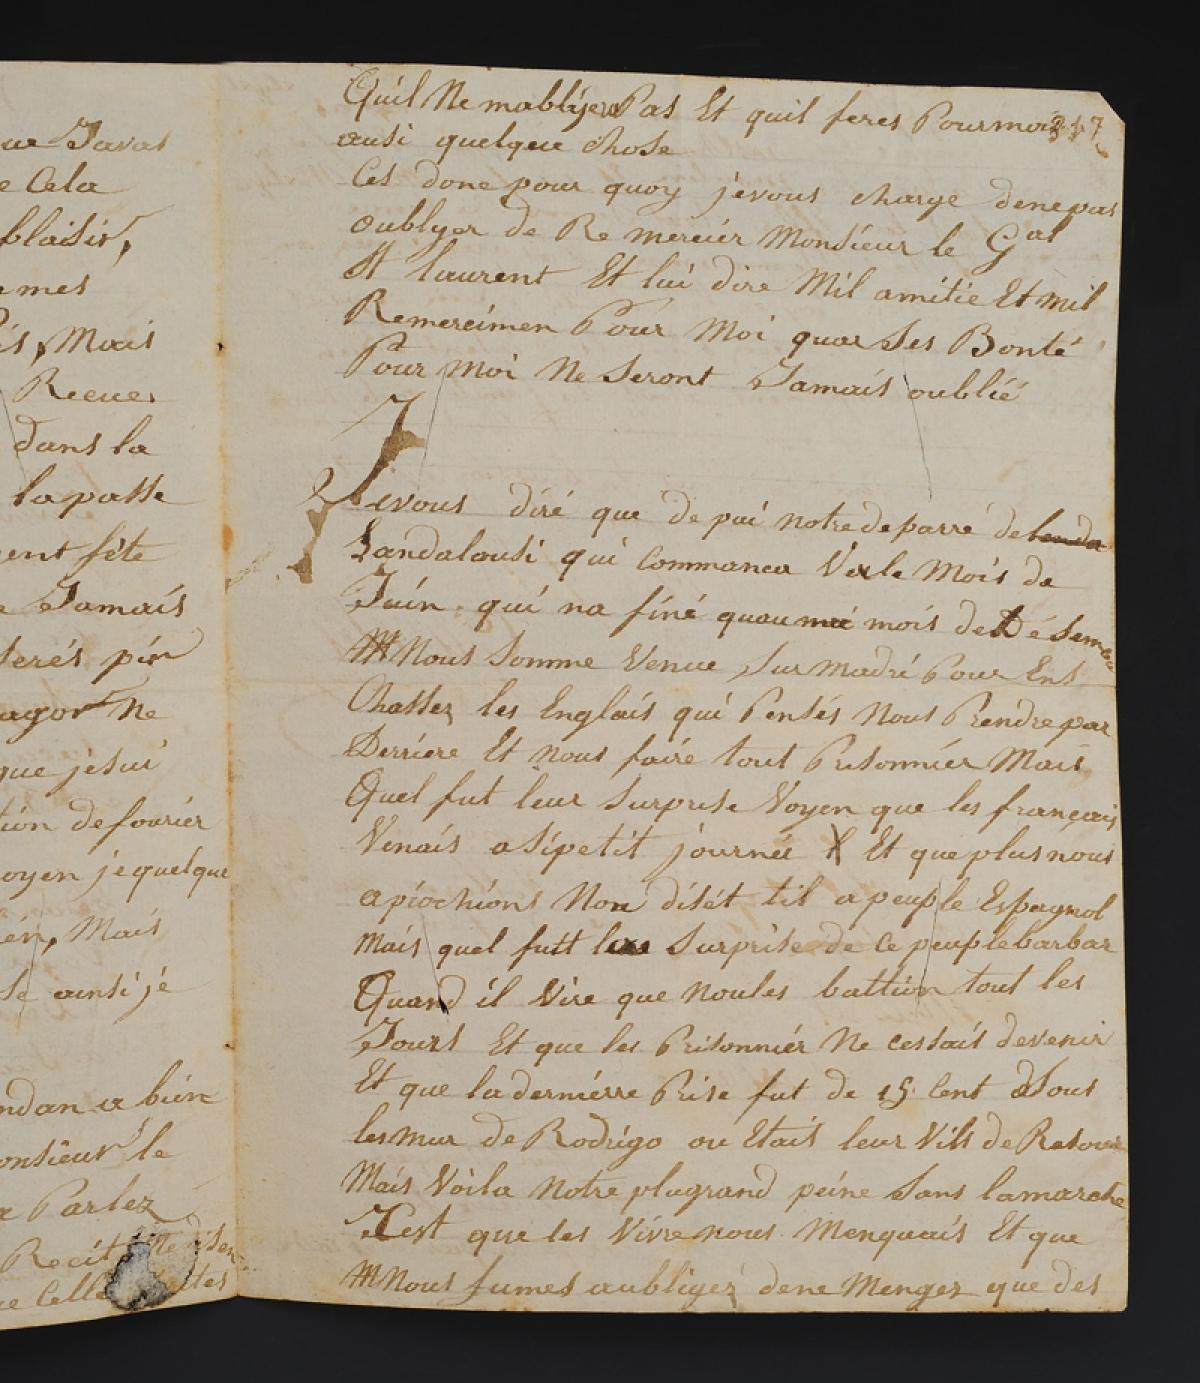 ue Javas
e Cela
blaisir,
emes
is, Mais
Recue
dans la
la passe
ent fête
e Jamais
serés pin
agor Ne
que jé sui
tion de fourier
oyen je quelque
ién, Mais
se ainsi jé
ndan a bien
onsieur le
a Parlez
Recit
ue Celle
Quil Ne mabliyera Pas Et quil feres Pour moi 317
ausi quelque Chose
Ces done pour quoy je vous charge dene pas
oublyer de Remercier Monsieur le Gal
St laurent Et lui dire Mil amitie Et mil
Remercimen Pour Moi quar Ses Bonté
Pour Moi Ne Seront Jamais oublié
Je vous diré que de pui notre deparre de
Landalousi qui Commanca Verle Mois de
Juin qui na finé quau mois de Désembre
Nous Somme Venue Sur Madri Pour Ens
Chasser les Englais qui Pensés Nous Prendre par
Derriere Et Nous faire tout Prisonniér Mais
Quel fut leur Surprise Voyen que les français
Venais a Si petit journée Et que plus nous
apiochions Non disét til a peuple Espagnol
Mais quel futt leur Surprise de Ce peuple barbar
Quand il Vire que Noules battion tout les
Jours Et que les Prisonniér Ne cessais devenir
Et que la derniérre Prise fut de 15 Cent dSous
les mur de Rodrigo ou Etais leur Vils de Resour
Mais Voila Notre plu grand peine Sans la marche
Cest que les Vivre nous Menquais Et que
Nous fumes aubligez dene Menger que des